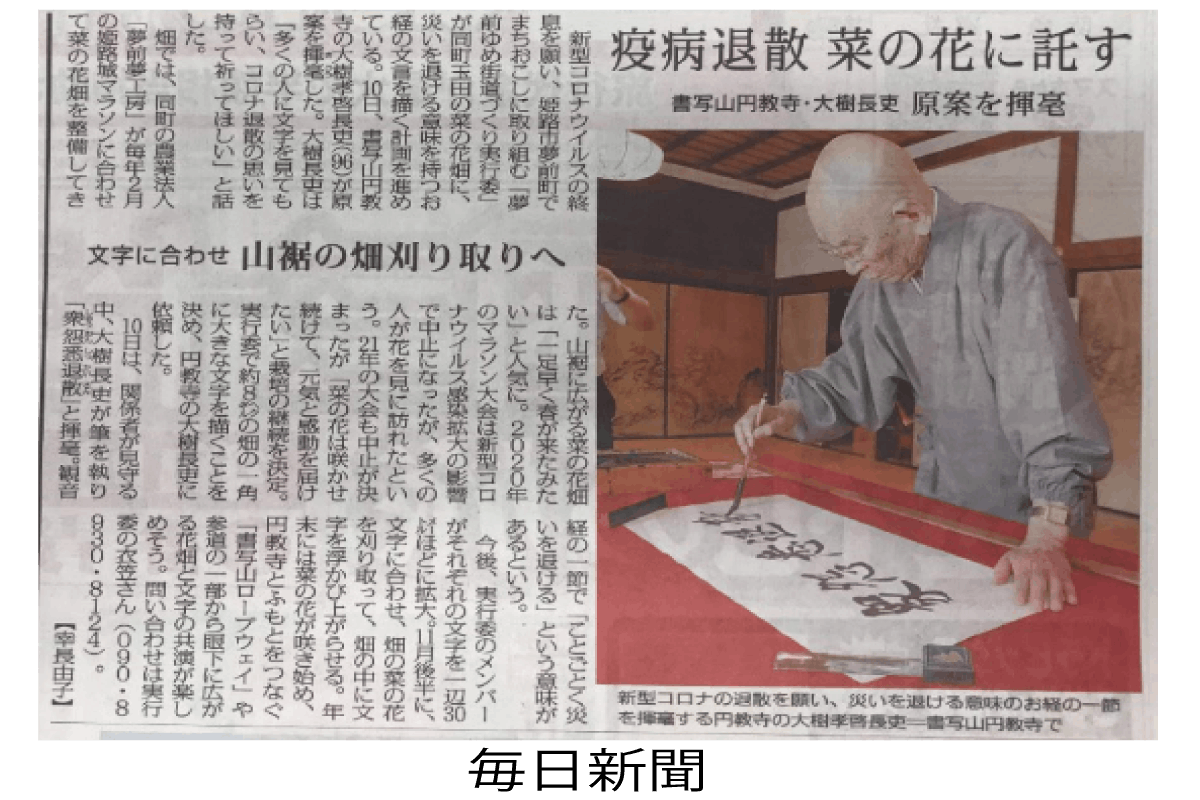 疫病退散 菜の花に託す
書写山円教寺・大樹長吏 原案を揮毫
新型コロナウイルスの終
息を願い、姫路市夢前町で
まちおこしに取り組む「夢
前ゆめ街道づくり実行委」
が同町玉田の菜の花畑に、
災いを退ける意味を持つお
経の文言を描く計画を進め
ている。10日、書写山円教
寺の大樹孝啓長吏(96)が原
案を揮毫した。大樹長吏は
「多くの人に文字を見ても
らい、コロナ退散の思いを
持って祈ってほしい」と話
した。
畑では、同町の農業法人
「夢前夢工房」が毎年2月
の姫路城マラソンに合わせ
て菜の花畑を整備してき
文字に合わせ 山裾の畑刈り取りへ
た。山裾に広がる菜の花畑
は「一足早く春が来たみた
い」と人気に。2020年
のマラソン大会は新型コロ
ナウイルス感染拡大の影響
で中止になったが、多くの
人が花を見に訪れたとい
う。21年の大会も中止が決
まったが「菜の花は咲かせ
続けて、元気と感動を届け
たい」と栽培の継続を決定。
実行委で約8㌶の畑の一角
に大きな文字を描くことを
決め、円教寺の大樹長吏に
依頼した。
10日は、関係者が見守る
中、大樹長吏が筆を執り
「衆怨悉退散」と揮毫。観音
経の一節で「ことごとく災
いを退ける」という意味が
あるという。
今後、実行委のメンバー
がそれぞれの文字を一辺30
㍍ほどに拡大。11月後半に、
文字に合わせ、畑の菜の花
を刈り取って、畑の中に文
字を浮かび上がらせる。年
末には菜の花が咲き始め、
円教寺とふもとをつなぐ
「書写山ロープウェイ」や
参道の一部から眼下に広が
る花畑と文字の共演が楽し
めそう。問い合わせは実行
委の衣笠さん(090・8
930・8124)。
【幸長由子】
新型コロナの退散を願い、災いを退ける意味のお経の一節
を揮毫する円教寺の大樹孝啓長吏=書写山円教寺で
毎日新聞